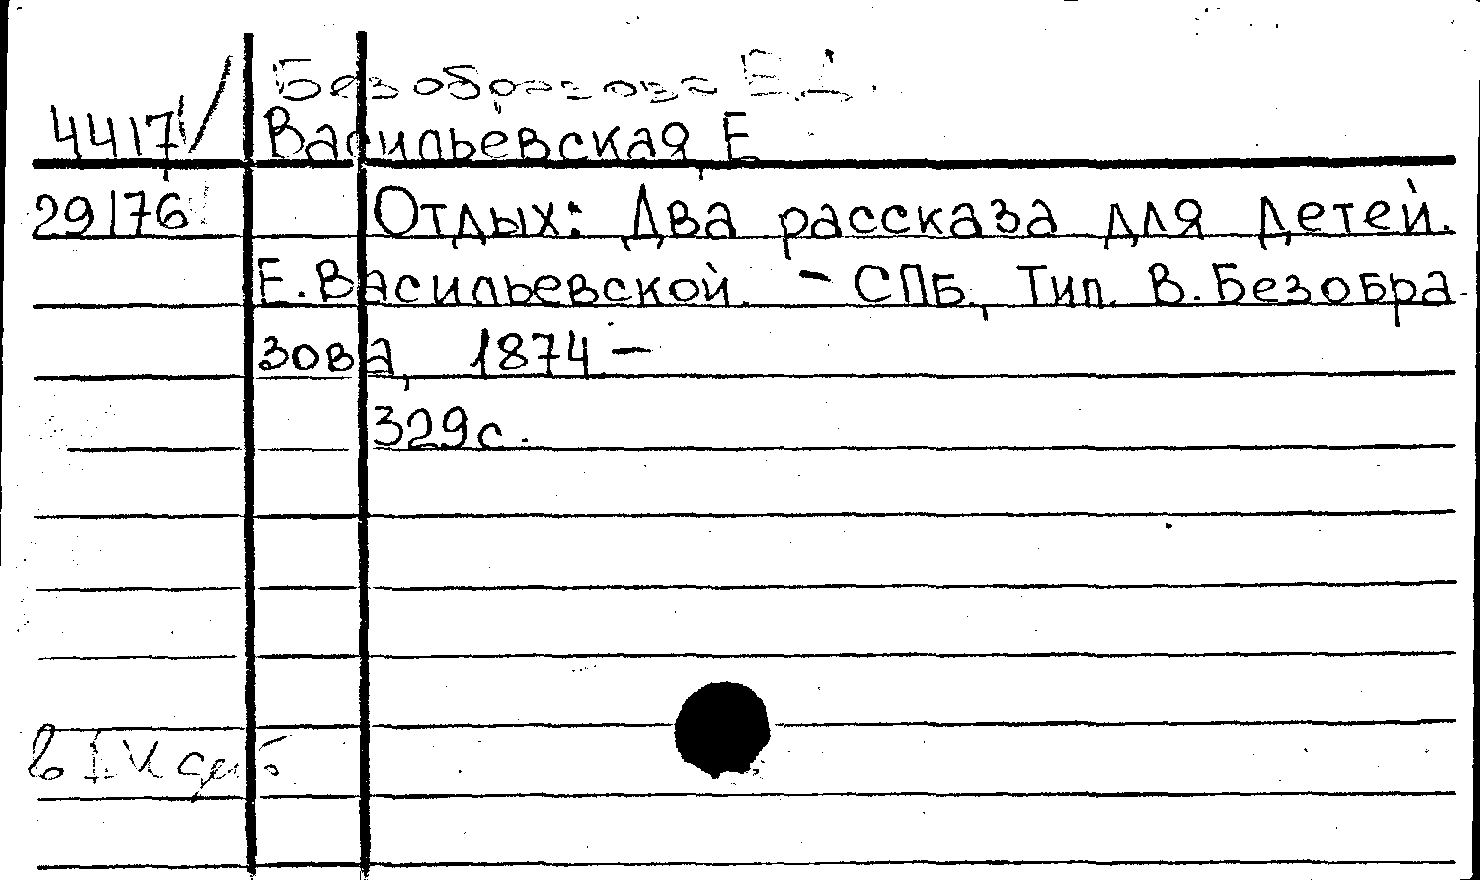 Безобразова Е.Д.
4417/ Васильевская, Е
29176 Отдых: Два рассказа для детей.
Е.Васильевской. – СПБ, Тип. В.Безобра
зова, 1874 –
329с.
в IV